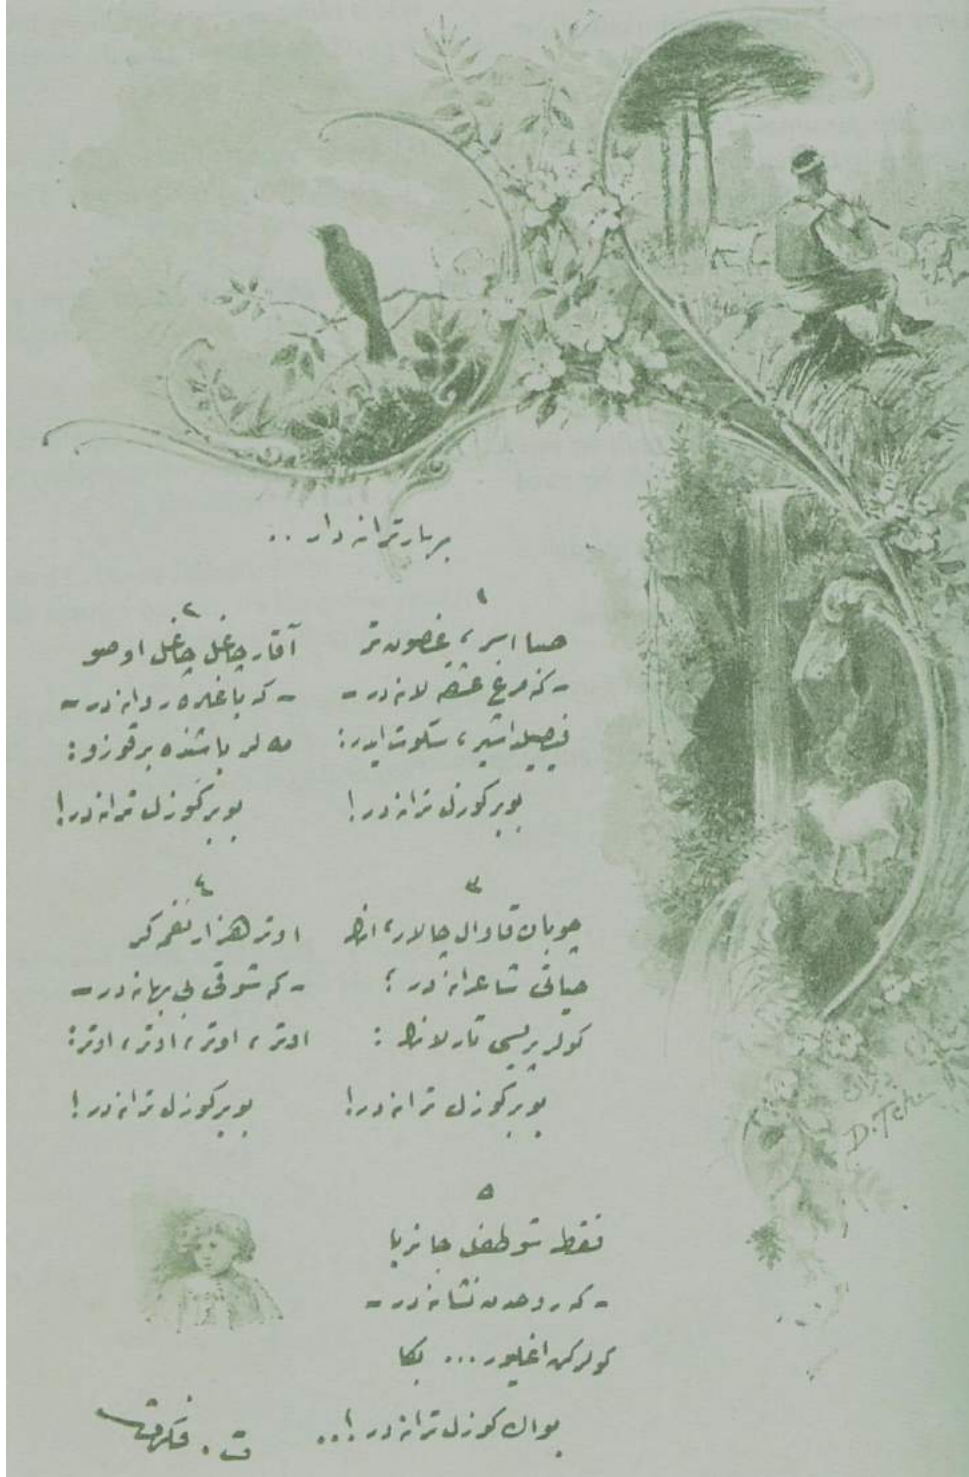 بهار ترانه دار ..
١
صبا اسر، غصون تر
- که مرغ عشقه لانه در -
فیصیلداشیر، سکوت ایدر:
بو بر کوزل ترانه در!
٢
آقار چاغل چاغل او صو
- که باغلره روانه در -
مه لر باشنده بر قوزو:
بو بر کوزل ترانه در!
٣
چوبان قاوال چالار، انك
حیاتی شاعرانه در؛
کولر پریسی تارلانك:
بو بر کوزل ترانه در!
٤
اوتر هزار نغمه کر
- که شوقی بی بهانه در -
اوتر، اوتر، اوتر، اوتر:
بو بر کوزل ترانه در!
٥
فقط شو طفل جانربا
- که روحدن نشانه در -
کولرکن اغلیور... بکا
بو اك کوزل ترانه در!..
ت. فکرت